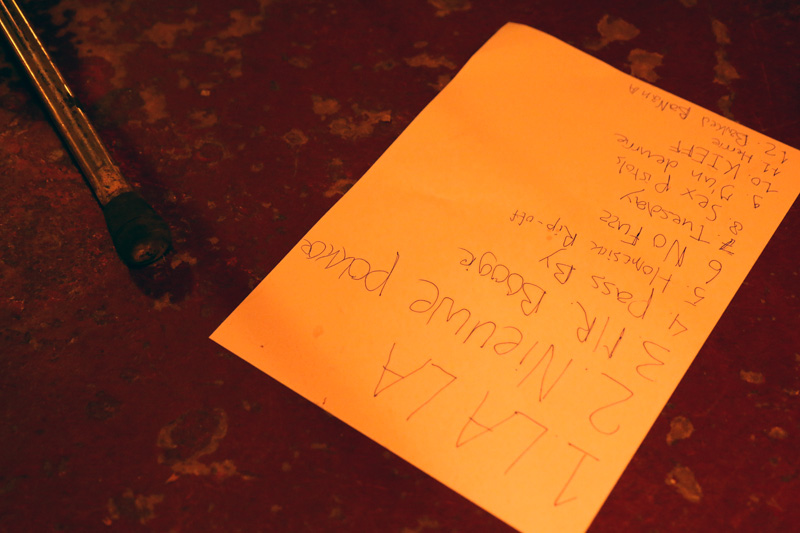 1 LA LA
2. Nieuwe panne
3. MR. Boogie
4 Pass By
5. Homesiac Rip-off
6 No Fuzz
7 Tuesday
8. Sex Pistols
9 D'un deurne
10. KIEFF
11. Heme
12. Boosted BaNanA